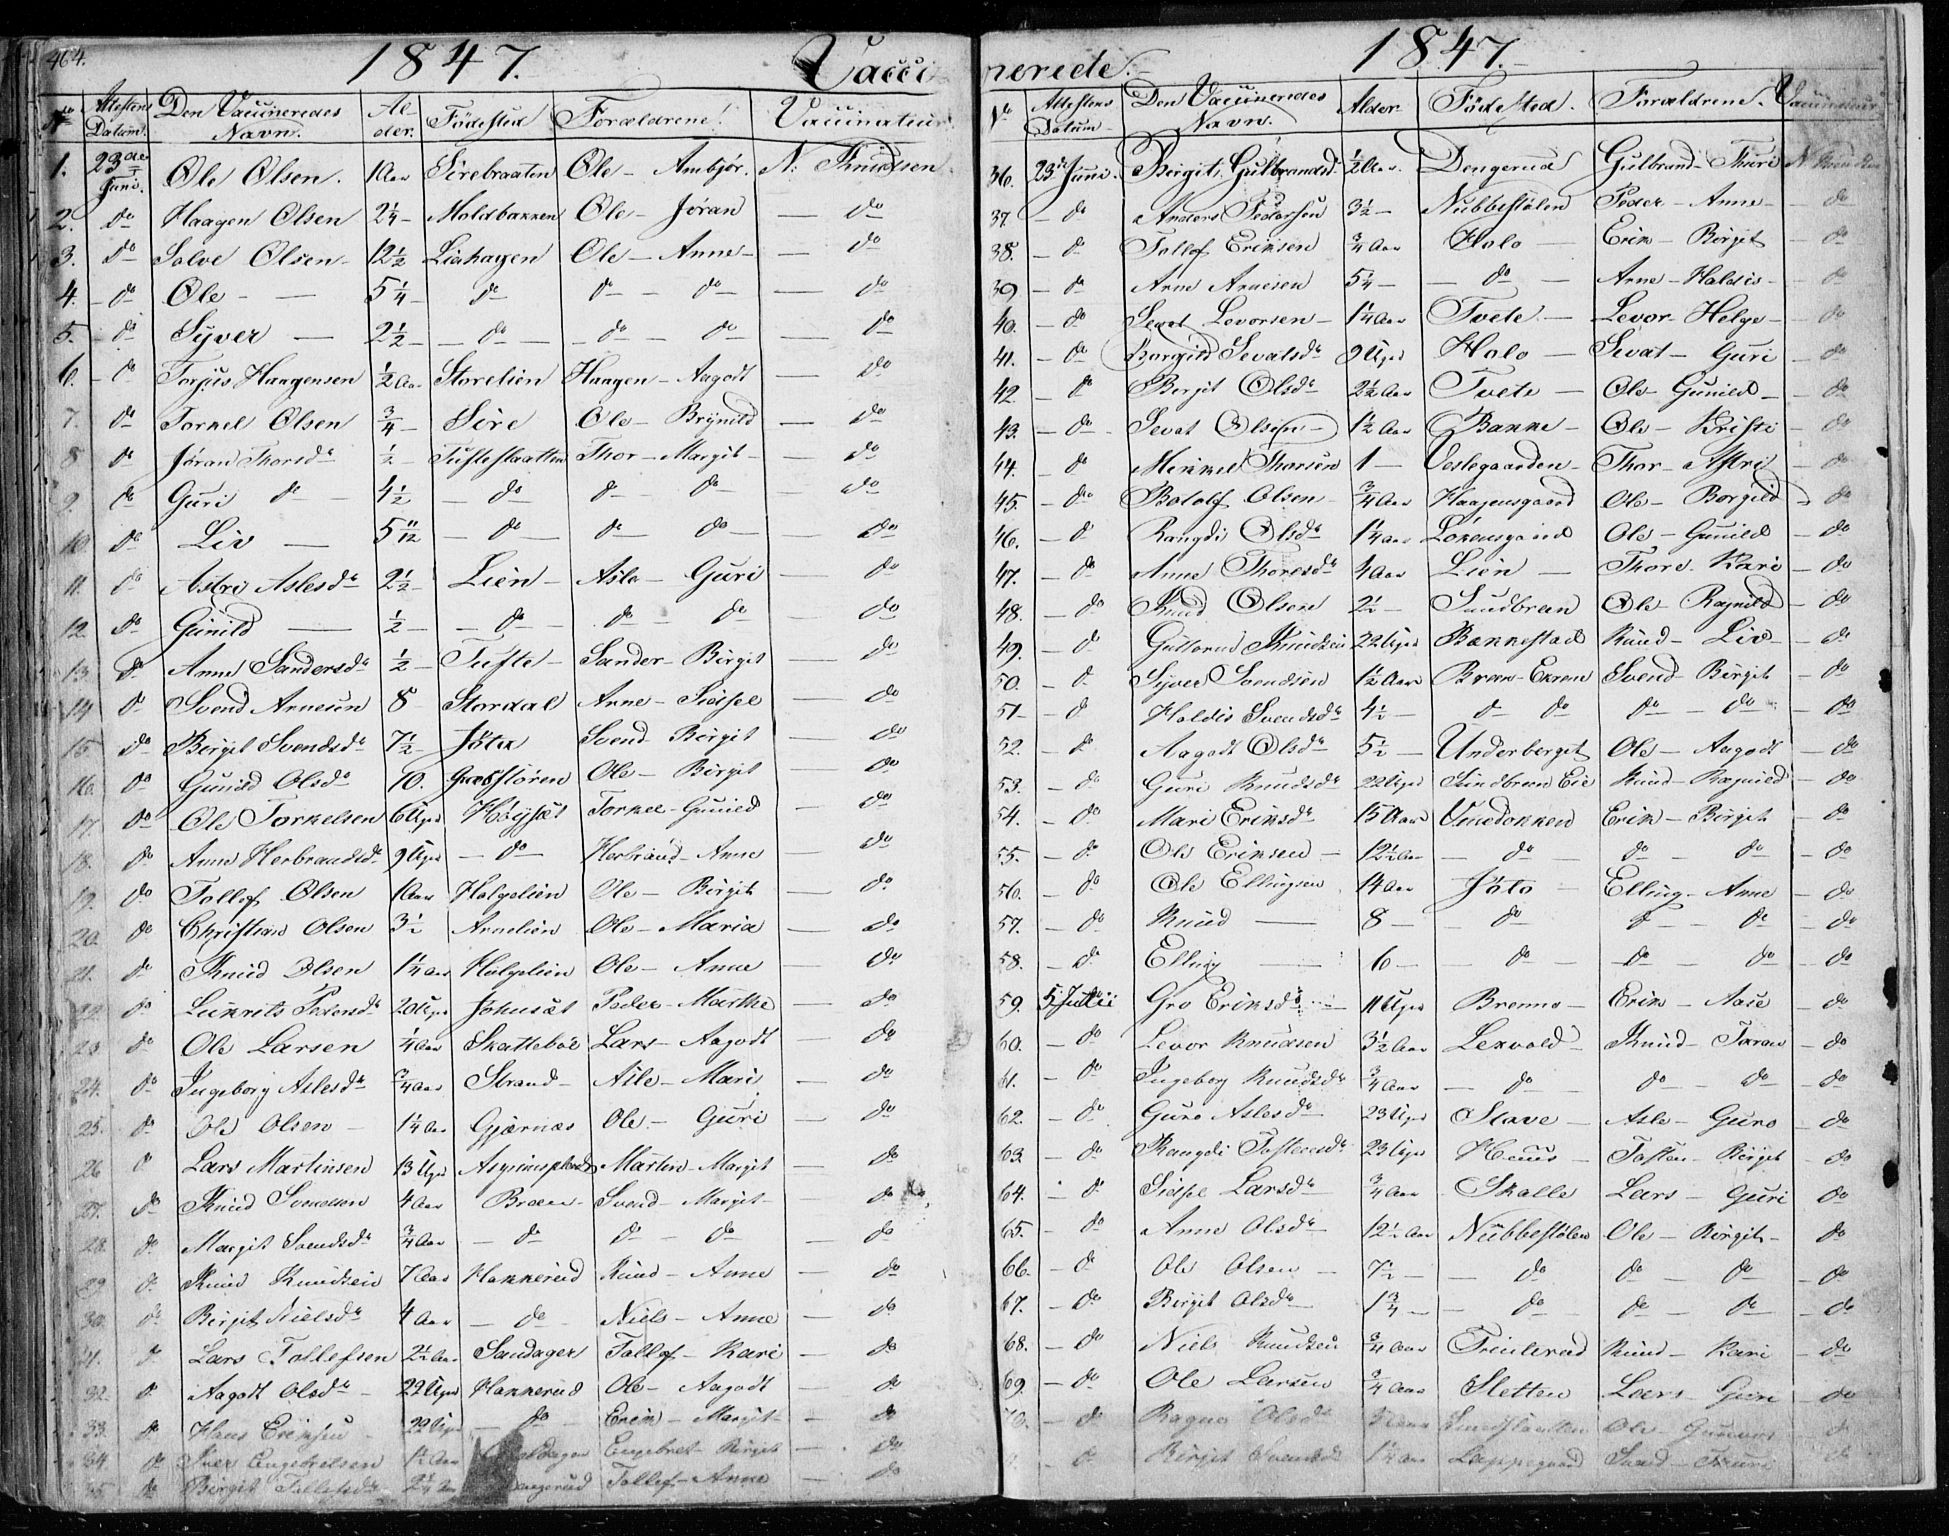 464.
1847. Vacci
No Attestens Datum. Den Vaccineredes Navn. Al-der. Fødested Forældrene. Vaccinateur
1. 23de Juni. Ole Olsen. 1 Aar Sirebraaten Ole - Ambjør. N. Knudsen
2. do Haagen Olsen 2 1/4 - Moldbakken Ole - Jøran do
3. do Salve Olsen - 12 1/2 Liahagen Ole - Anne - do
4. do Ole - 5 1/4 do do - do - do
5. do Syver - 2 1/2 - do - do - do do
6. do Torjus Haagensen 1/2 Aar Storelien Haagen - Aagodt - do
7. do Torkel Olsen 3/4 - Sire Ole - Brynild - do
8 do Jøran Thorsdr 1/2 - Tufteslaatten Thor - Margit - do
9. do Guri do - 4 1/2 - do do - do - do
10. do Liv - 5 11/12 - do - do - do - do
11. do Astri Aslesdr 2 1/2 - Lien - Asle - Guri - do
12. do Gunild - 1/2 - do - do - do - do
13. do Anne Sandersdr 1/2 - Tufte - Sander - Birgit - do
14 do Svend Arnesen 8 Stordal Arne - Sidsel - do
15 do Birgit Svendsdr 7 1/2 - Jøta Svend - Birgit - do
16. do Gunild Olsdr 10. Ole - Birgit - do
17. do Ole Torkelsen 6 Uger Høijsæt Torkel - Gunild - do
18. do Anne Herbrandsdr 9 Uger - do - Herbrand - Anne - do
19. do Tollef Olsen 1 Aar Helgelien Ole - Birgit - do
20. do Christian Olsen 3 1/2 Arnelien Ole - Maria - do
21. do Knud Olsen 1 1/4 Aar Helgelien Ole - Anne - do
22. do Pedersdr 20 Uger Johnsæt Peder - Marthe - do
23 do Ole Larsen 1/4 Aar Skattebøe Lars - Aagodt - do
24. do Ingeborg Aslesdr 3/4 Aar Strand - Asle - Mari - do
25. do Ole Olsen - 1 1/4 Aar Gjærnæs Ole - Guri - do
26 do Lars Martinsen 13 Uger Asgrimsplads Martin - Margit - do
27. do Knud Svendsen 4 Aar Bræen - Svend - Margit - do
28. do Margit Svendsdr 3/4 Aar - do - do - do - do
29 do Knud Knudsen 7 Aar Hakkerud Knud - Anne - do
30. do Birgit Nielsdr 4 Aar - do - Niels - Anne - do
31. do Lars Tollefsen 2 1/2 Aar Sandager Tollef - Kari - do
32. do Aagodt Olsdr - 22 Uger Hakkerud Ole - Aagodt - do
33. do Hans Eriksen 22 Uger - do - Erik - Margit - do
34 do Iver Engebretsen 1 1/2 Aar Engebret - Birgit - do
35. do Birgit Tollefsdr 2 1/4 Aar Tollef - Anne - do
nerede. 1847.
No Attestens Datum Den Vaccineredes Navn. Alder. Fødested. Forældrene. Vaccinateur
36. 23 Juni. Birgit Gulbrandsd 1/2 Aar. Dengerud Gulbrand - Thuri N. Knudsen
37. - do Anders Pedersen 3 1/2 - Nubbestølen Peder - Anne - do
38. - do Tollef Eriksen 3/4 Aar Holo - Erik - Birgit - do
39 - do Arne Arnesen 5 1/4 - - do - Arne - Haldis - do
40. - do Sevat Levorsen - 1 1/4 Aar Tvete - Levor - Helge - do
41. - do Borgild Sevatsdr 9 Uger Holo - Sevat - Guri - do
42 - do Birgit Olsdr 2 1/2 Aar Tvete - Ole - Gunild - do
43. - do Sevat Olsen - 1 1/2 Aar Bakke - Ole - Kristi - do
44. - do Mikkel Thorsen 1 - Vestegaarden - Thor - Astri - do
45. - do Botolf Olsen - 3/4 Aar Haagensgaard Ole - Borgild - do
46. - do Rangdi Olsdr 1 1/4 Aar Lørensgaard Ole - Gunild - do
47. - do Anne Thoresdr 4 Aar Lien - Thore - Kari - do
48. - do Knud Olsen 2 1/2 - Sundbreen Ole - Ragnild - do
49. - do Guttorm Knudsen 22 Uger Bakkestad Knud - Liv - do
50. - do Syver Svendsen 1 1/2 Aar Bræen - Svend - Birgit - do
51 - do Haldis Svendsdr 4 1/2 - do do do - do - do
52. - do Aagodt Olsdr 5 1/2 - Underberget Ole - Aagodt - do
53. - do Guri Knudsdr 22 Uger Sundbreen Eie Knud - Ragnild - do
54. - do Mari Eriksdr 15 Aar Vinedokken Erik - Birgit - do
55. - do Ole Eriksen - 12 1/2 Aar - do - do - do - do
56. - do Ole Ellingsen 14 Aar Jøto - Elling - Anne - do
57. - do Knud - 8 - do - do - do - do
58. - do Elling - 6 - - do - do - do - do
59. 5 Julii Gro Eriksdr - 11 Uger Brenno - Erik - Aase - do
60. - do Levor Knudsen 3 1/2 Aar Lekvold - Knud - Jøran - do
61. - do Ingeborg Knudsdr 3/4 Aar - do do - do - do
62. - do Guro Aslesdr 23 Uger Stave - Asle - Guro - do
63 - do Rangdi Tostensdr 23 Uger Haus - Tosten - Birgit - do
64. - do Sidsel Larsdr 3/4 Aar Skalle Lars - Guri do
65. - do Anne Olsdr - 12 1/2 Aar Nubbestølen Ole - Birgit - do
66. - do Ole Olsen - 7 1/2 - - do do - do - do
67. - do Birgit Olsdr - 1 3/4 - - do do - do - do
68. - do Niels Knudsen 3/4 Aar Trinterud Knud - Kari - do
69. - do Ole Larsen 3/4 Aar Sletten Lars - Guri - do
70. - do Ragne Olsdr Ole - do
- do Birgit Svendsdr 1 1/4 Aar Lappegaard Svend - Thuri do